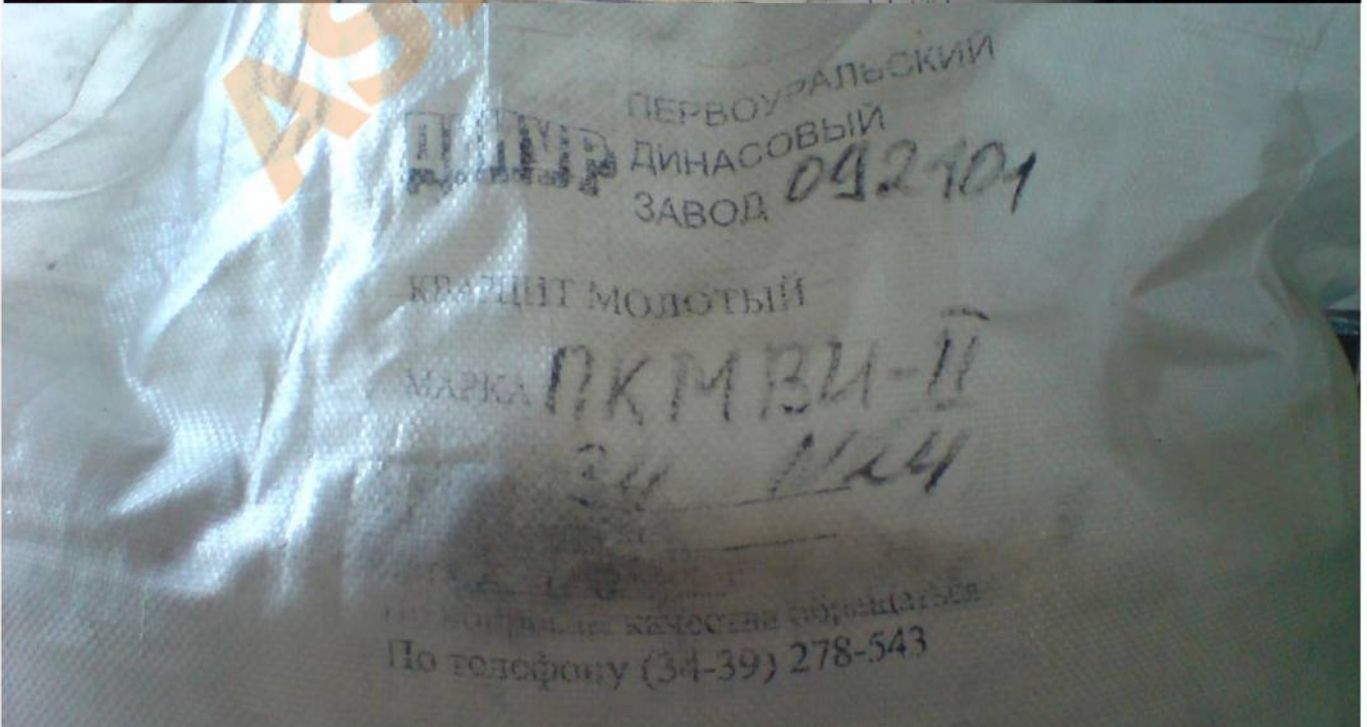 ДИНУР ПЕРВОУРАЛЬСКИЙ
ДИНАСОВЫЙ
ЗАВОД 092101
КВАРЦИТ МОЛОТЫЙ
МАРКА ПКМВИ-II
34
качества обращаться
По телефону (34-39) 278-543